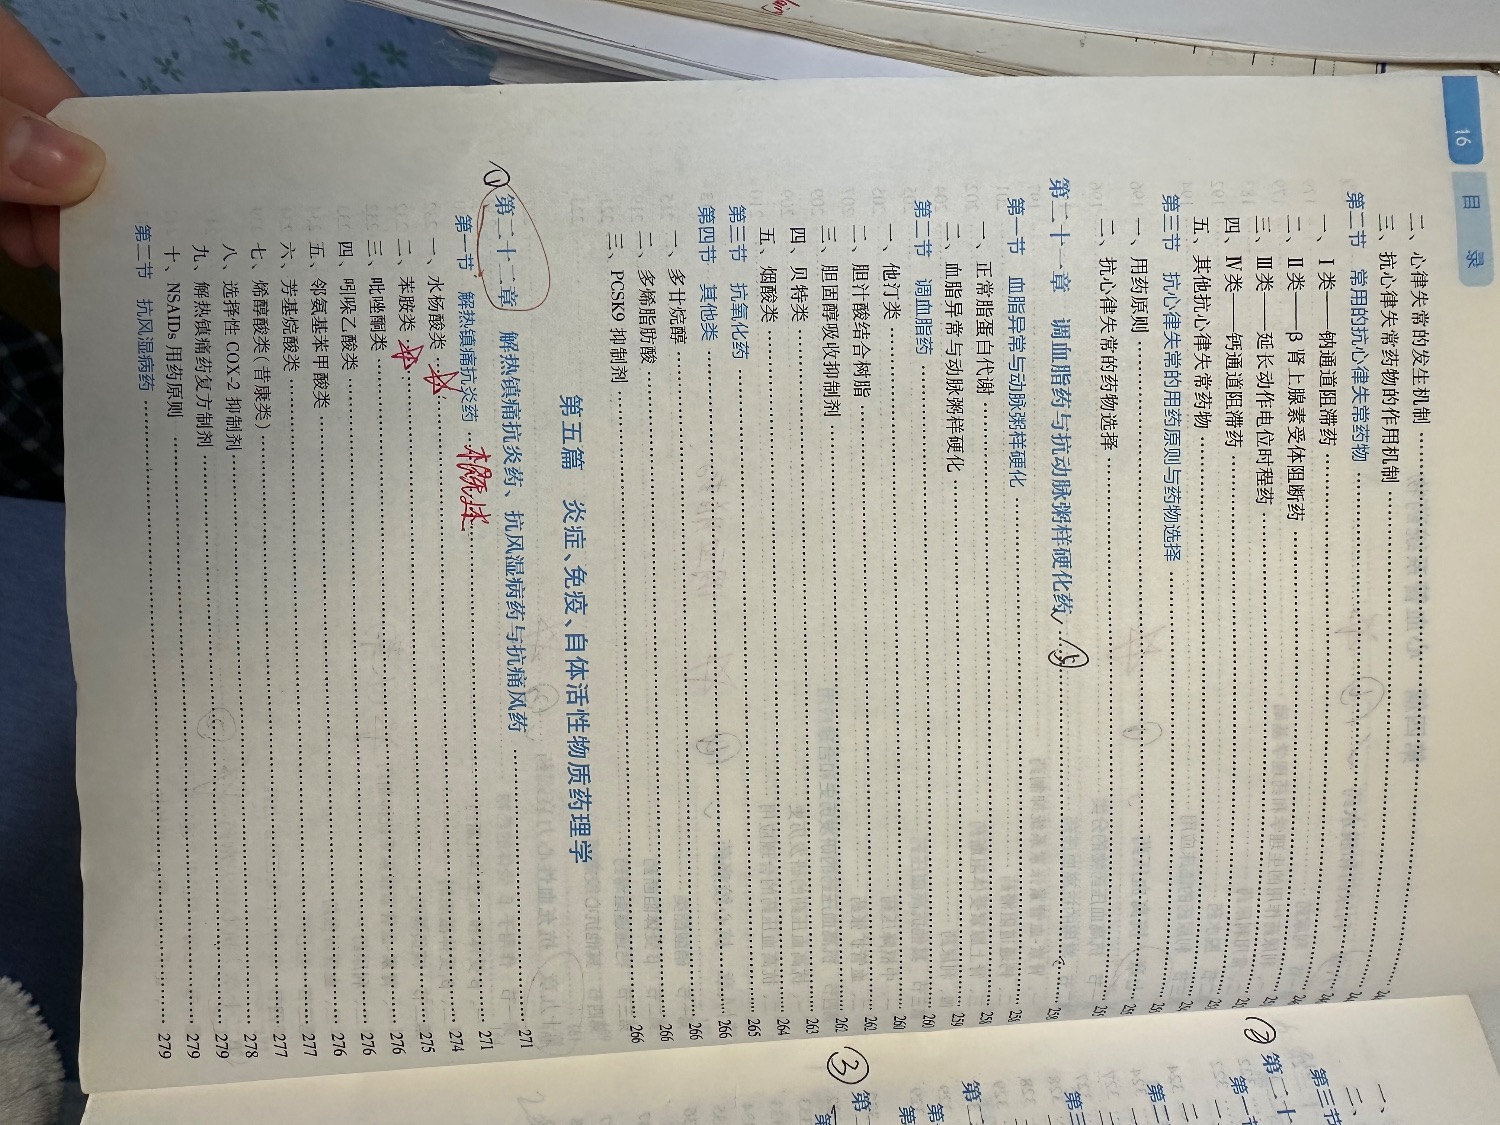 16 目 录
二、心律失常的发生机制
三、抗心律失常药物的作用机制
第二节 常用的抗心律失常药物
一、Ⅰ类——钠通道阻滞药
二、Ⅱ类——β肾上腺素受体阻断药
三、Ⅲ类——延长动作电位时程药
四、Ⅳ类——钙通道阻滞药
五、其他抗心律失常药物
第三节 抗心律失常的用药原则与药物选择
一、用药原则
二、抗心律失常的药物选择
第二十一章 调血脂药与抗动脉粥样硬化药 258
第一节 血脂异常与动脉粥样硬化 258
一、正常脂蛋白代谢 258
二、血脂异常与动脉粥样硬化 259
第二节 调血脂药 260
一、他汀类 260
二、胆汁酸结合树脂 262
三、胆固醇吸收抑制剂 262
四、贝特类 263
五、烟酸类 264
第三节 抗氧化药 265
第四节 其他类 266
一、多廿烷醇 266
二、多烯脂肪酸 266
三、PCSK9 抑制剂 266
第五篇 炎症、免疫、自体活性物质药理学
① 第二十二章 解热镇痛抗炎药、抗风湿病药与抗痛风药 271
第一节 解热镇痛抗炎药 概述 271
一、水杨酸类 274
二、苯胺类 275
三、吡唑酮类 276
四、吲哚乙酸类 276
五、邻氨基苯甲酸类 276
六、芳基烷酸类 277
七、烯醇酸类(昔康类) 277
八、选择性 COX-2 抑制剂 278
九、解热镇痛药复方制剂 279
十、NSAIDs 用药原则 279
第二节 抗风湿病药 279
一、
二、
第三节
② 第二十
第一节
一
二
第二
第三
第二
第
③ 第二
第